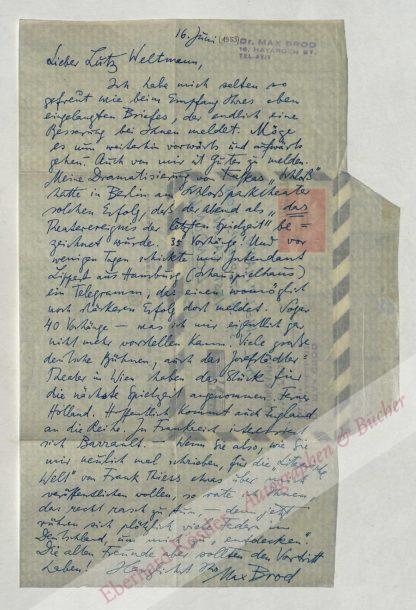 16. Juni (1953)
Dr. MAX BROD
16, HAYARDEN ST.
TEL-AVIV
Lieber Lutz Weltmann,
Ich habe mich selten so
gefreut wie beim Empfang Ihres eben
eingelangten Briefes, der endlich eine
Besserung bei Ihnen meldet. Möge
es nun weiterhin vorwärts und aufwärts
gehen! Auch von mir ist Gutes zu melden.
Meine Dramatisierung von Kafkas „Schloß“
hatte in Berlin am Schloßparktheater
solchen Erfolg, daß der Abend als „das
Theaterereignis der letzten Spielzeit“ be=
zeichnet wurde. 35 Vorhänge. Und vor
wenigen Tagen schickte mir Intendant
Lippert aus Hamburg (Schauspielhaus)
ein Telegramm, das einen womöglich
noch stärkeren Erfolg dort meldet. Sogar
40 Vorhänge – was ich mir eigentlich gar
nicht mehr vorstellen kann. Viele große
deutsche Bühnen, auch das Josefstädter-
Theater in Wien haben das Stück für
die nächste Spielzeit angenommen. Ferner
Holland. Hoffentlich kommt auch England
an die Reihe. In Frankreich interessiert
sich Barrault. – Wenn Sie also, wie Sie
mir neulich mal schrieben, für die
Welt“ von Frank Thiess etwas über
veröffentlichen wollen, so rate Ihnen
das recht rasch zu tun, – denn jetzt
rühren sich plötzlich viele Federn in
Deutschland, um mich zu „entdecken“.
Die alten Freunde aber sollten den Vortritt
haben! Herzlichst Ihr
Max Brod
Eberhard Köstler Autographen & Bücher